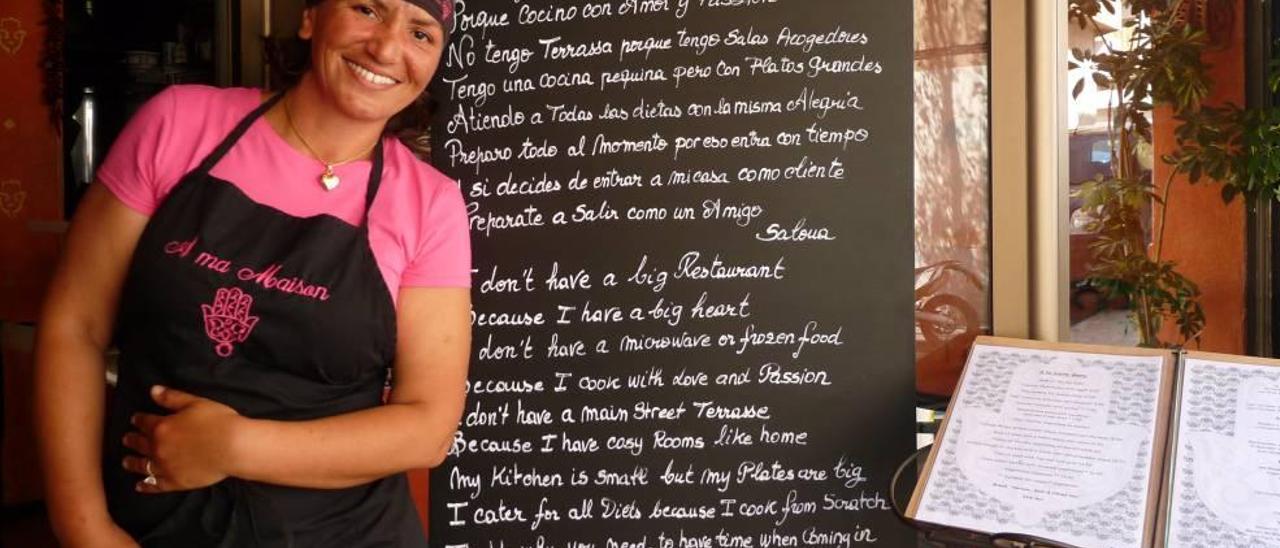 Porque Cocino con Amor y Passion
No tengo Terrassa porque tengo Salas Acogedores
Tengo una cocina pequina pero con Platos grandes
Atiendo a Todas las dietas con la misma Alegria
Preparo todo al Momento por eso entra con tiempo
si decides de entrar a mi casa como cliente
Preparate a Salir como un Amigo
Saloua
I don't have a big Restaurant
Because I have a big heart
don't have a microwave or frozen food
Because I cook with Love and Passion
don't have a main Street Terrasse
Because I have cosy Rooms like home
My Kitchen is small but my Plates are big
I cater for all Diets because I cook from Scratch
you need to have time when Coming in
A ma Maison